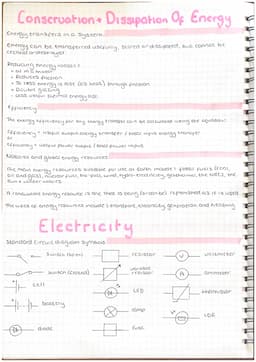 Conservation + Dissipation Of Energy
Energy transfers in a system
Energy can be transferred usefully, stored or dissipated, but cannot be
created or destroyed.
Reducing energy losses:
Reduced friction
So less energy is lost (as heat) through friction
Double glazing
Less wasted thermal energy lost
Efficiency
The energy efficiency for any energy transfer can be calculated using the equation:
efficiency = useful output energy transfer / total input energy transfer
or
efficiency = useful power output / total power input
National and global energy resources
The main energy resources available for use on Earth include: fossil fuels (coal,
oil and gas), nuclear fuel, bio-fuel, wind, hydro-electricity, geothermal, the tides, the
sun + water waves.
A renewable energy resource is one that is being (or can be) replenished as it is used
The uses of energy resources include: transport, electricity generation and heating.
Electricity
Standard circuit diagram symbols
switch (open)
resistor
V
voltmeter
switch (closed)
variable resistor
A
ammeter
cell
LED
thermistor
battery
lamp
LDR
diode
fuse